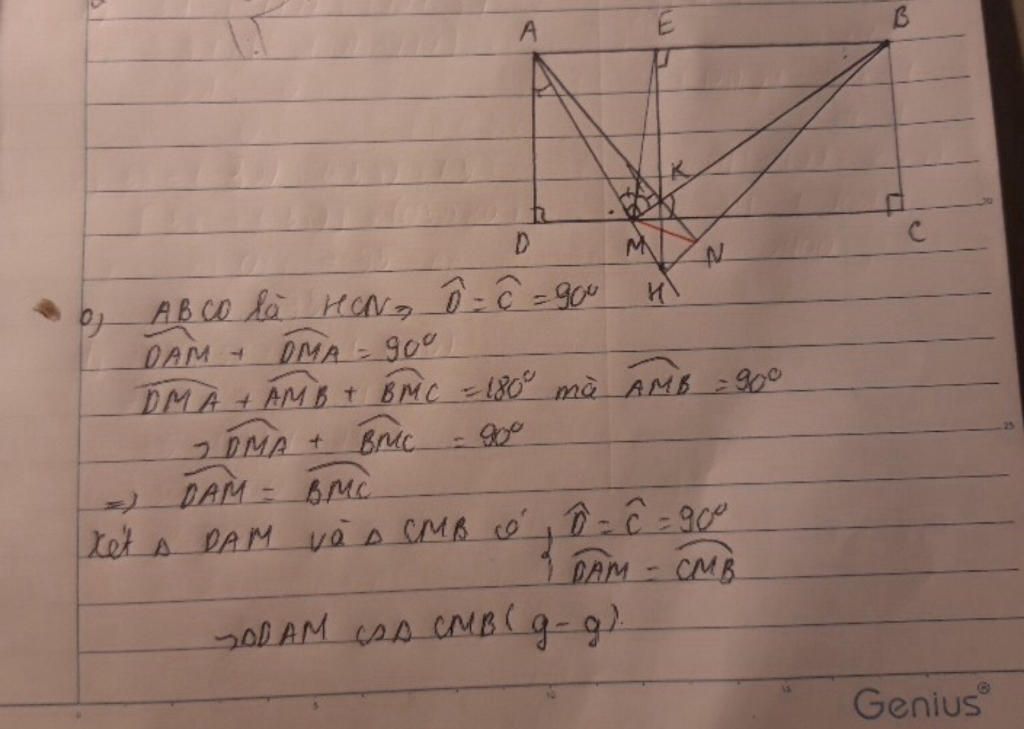 A E B
K
D M N C
H
b, ABCD là HCN => D̂ = Ĉ = 90°
DAM + DMA = 90°
DMA + AMB + BMC = 180° mà AMB = 90°
-> DMA + BMC = 90°
=> DAM = BMC
Xét Δ DAM và Δ CMB có { D̂ = Ĉ = 90°
DAM = CMB
-> ΔDAM ∽ Δ CMB (g-g)
Genius®